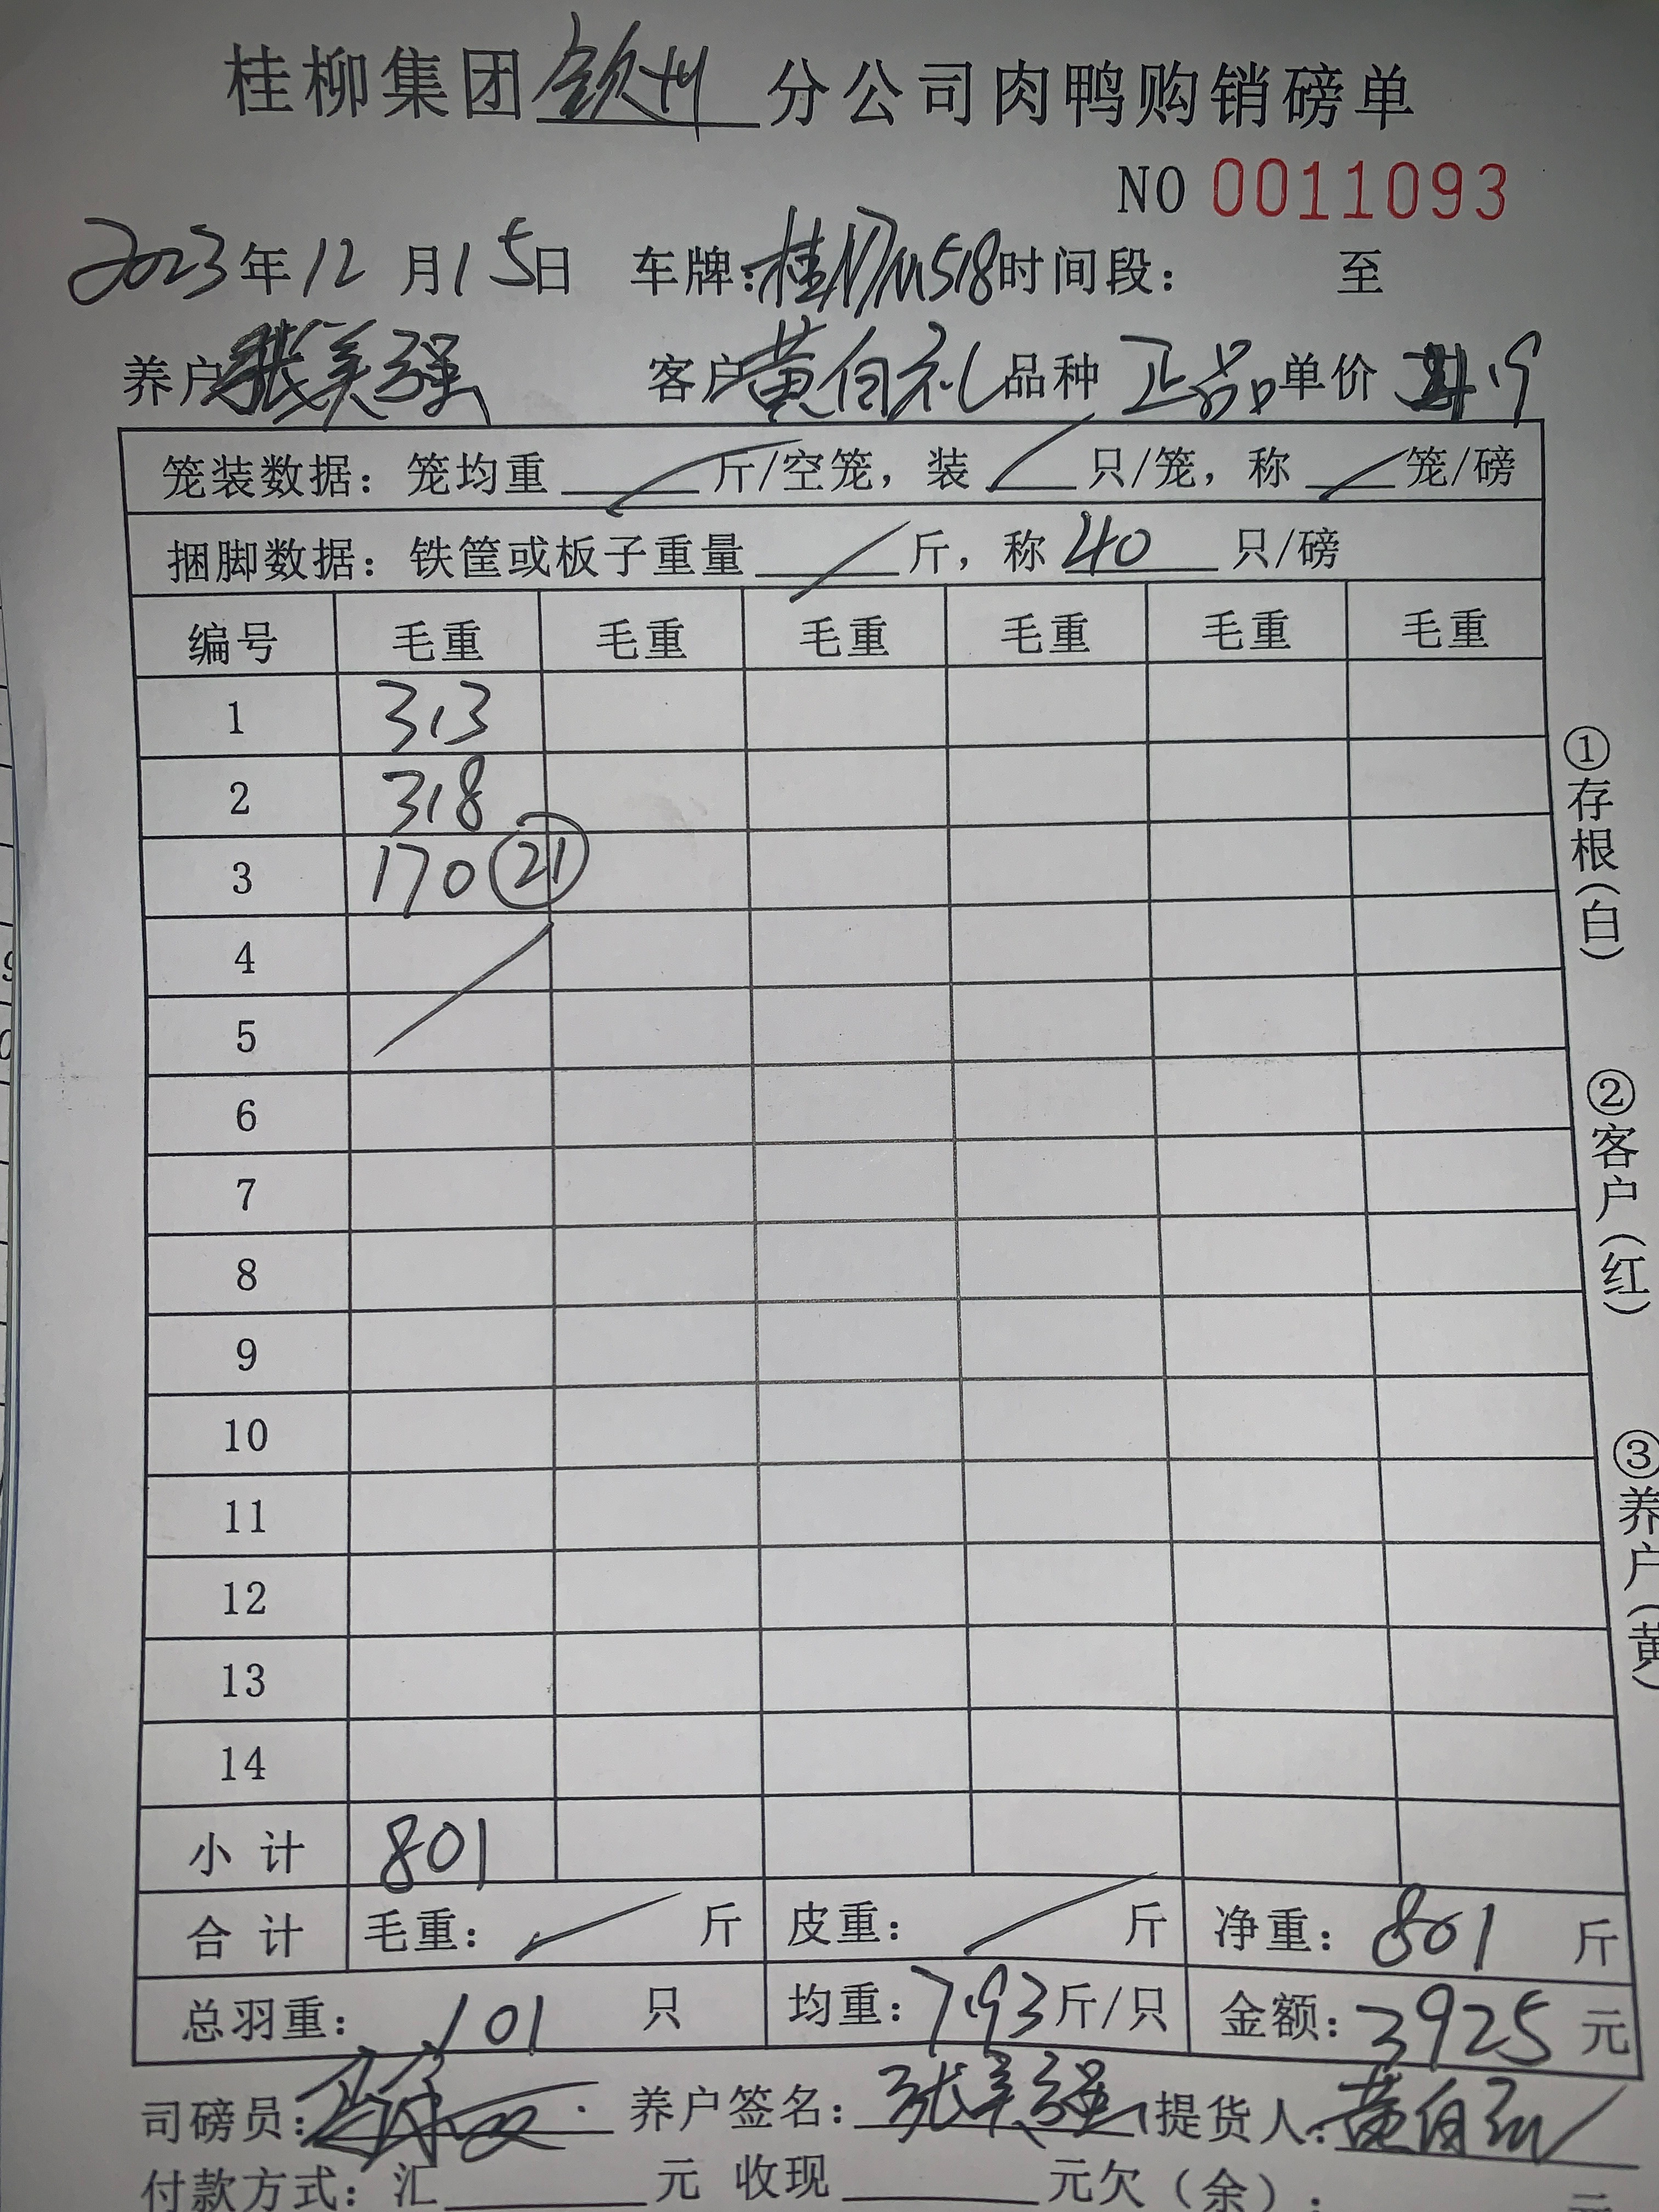 桂柳集团钦州分公司肉鸭购销磅单
NO 0011093
2023年12月15日 车牌:桂 M518时间段: 至
养户张美强 客户黄自礼品种 正品 单价 4.9
笼装数据: 笼均重 斤/空笼, 装 只/笼, 称 笼/磅
捆脚数据: 铁筐或板子重量 斤, 称 40 只/磅
编号 毛重 毛重 毛重 毛重 毛重 毛重
1 313
2 318
3 170 21
4
5
6
7
8
9
10
11
12
13
14
小计 801
合计 毛重: 斤 皮重: 斤 净重: 801 斤
总羽重: 101 只 均重: 7.93斤/只 金额: 3925 元
司磅员: 养户签名: 张美强 提货人: 黄自礼
付款方式: 汇 元 收现 元欠(余): 元
①存根(白)
②客户(红)
③养户(黄)